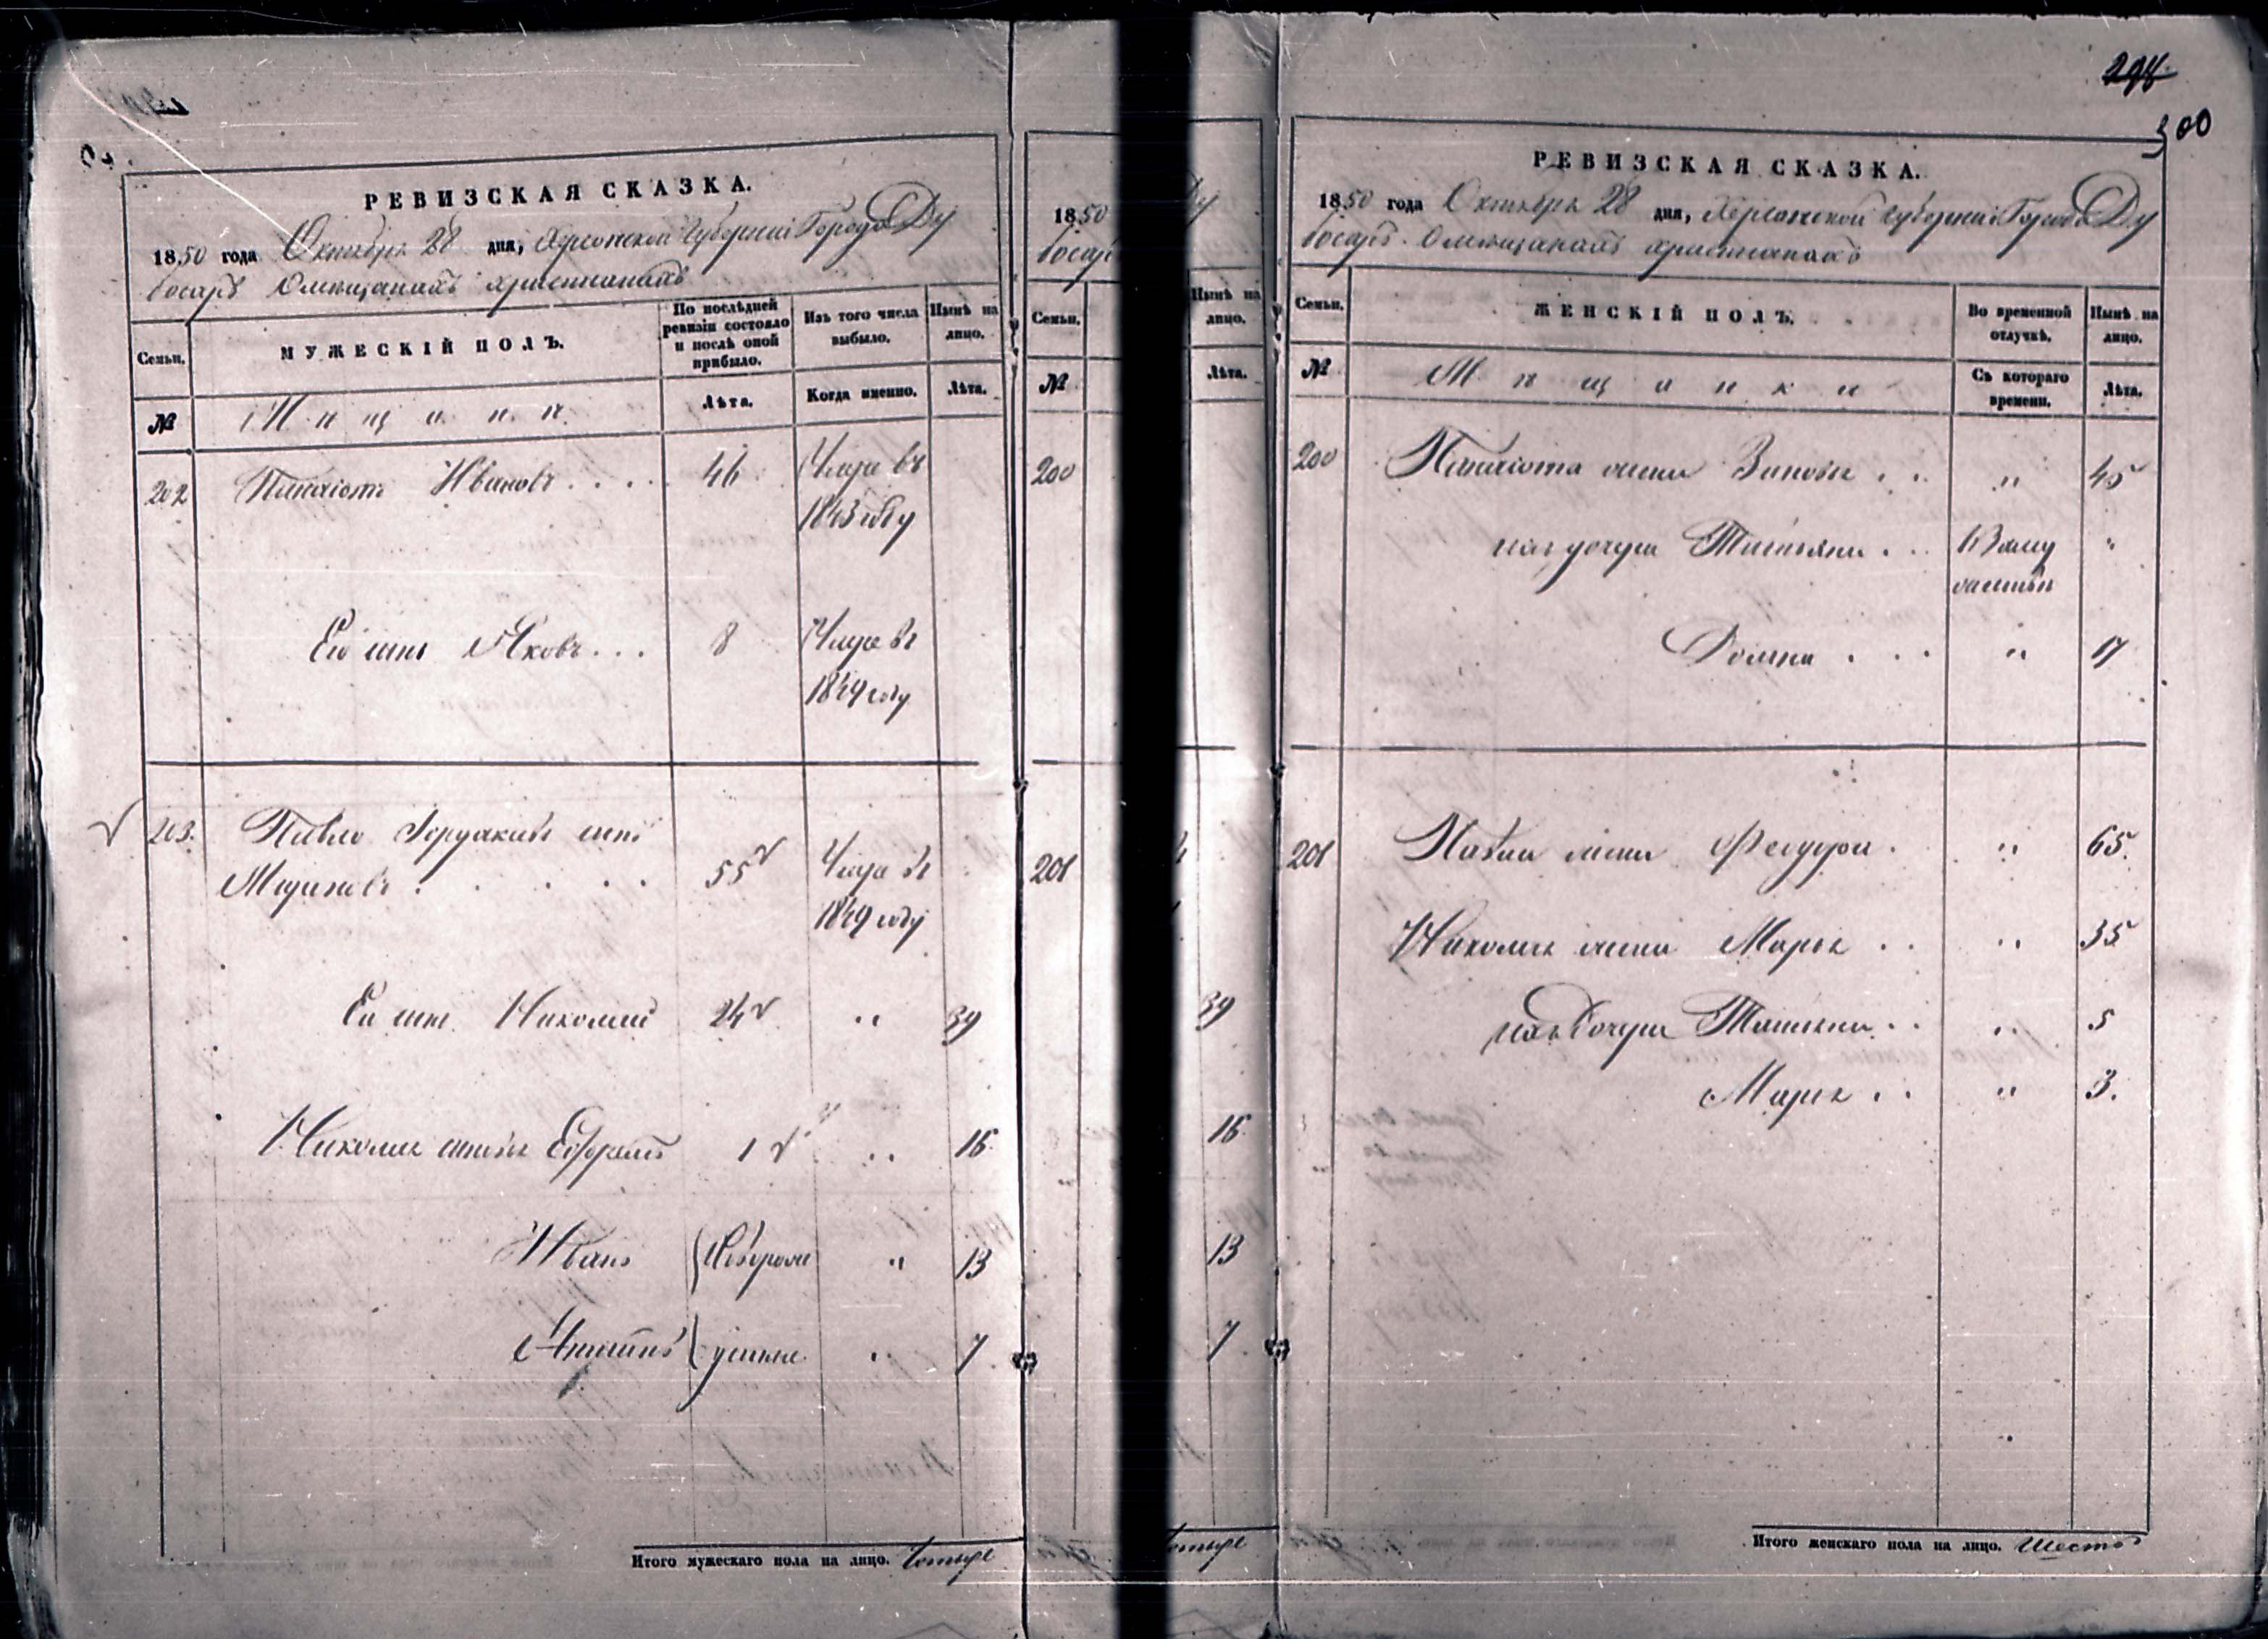 298
300
РЕВИЗСКАЯ СКАЗКА.
1850 года Октября 28 дня, Херсонской Губерніи Города Ду
босаръ О мѣщанахъ христианахъ
Семьи.
МУЖЕСКІЙ ПОЛЪ.
По послѣдней ревизіи состояло и послѣ оной прибыло.
Изъ того числа выбыло.
Нынѣ на лицо.
№
Мѣщане
Лѣта.
Когда именно.
Лѣта.
202 Панаіотъ Ивановъ . . . . 46 Умре въ
1843 году
Его сынъ Яковъ . . . 8 Умре въ
1849 году
203. Павло сынъ
55 Умре въ
1849 году
Его сынъ Николай 24 " 39
Николая сыновья Ефремъ 1 " 16
Иванъ " 13
Антонъ " 7
Итого мужескаго пола на лицо. Четыре
1850
босаръ
Семьи.
№
200
201
Нынѣ на лицо.
Лѣта.
39
16
13
7
РЕВИЗСКАЯ СКАЗКА.
1850 года Октября 28 дня, Херсонской Губерніи Города Ду
босаръ О мѣщанахъ христианахъ
Семьи.
ЖЕНСКІЙ ПОЛЪ.
Во временной отлучкѣ.
Нынѣ на лицо.
№
Мѣщанки
Съ котораго времени.
Лѣта.
200 Панаіота жена Зиновья . . " 45
ихъ дочери Татьяна . . . Взаму
жествѣ "
Домна . . . " 17
201 Павла жена Федора . " 65.
Николая жена Марья . . " 35
ихъ дочери Татьяна . . " 5
Марья . . " 3.
Итого женскаго пола на лицо. Шесть